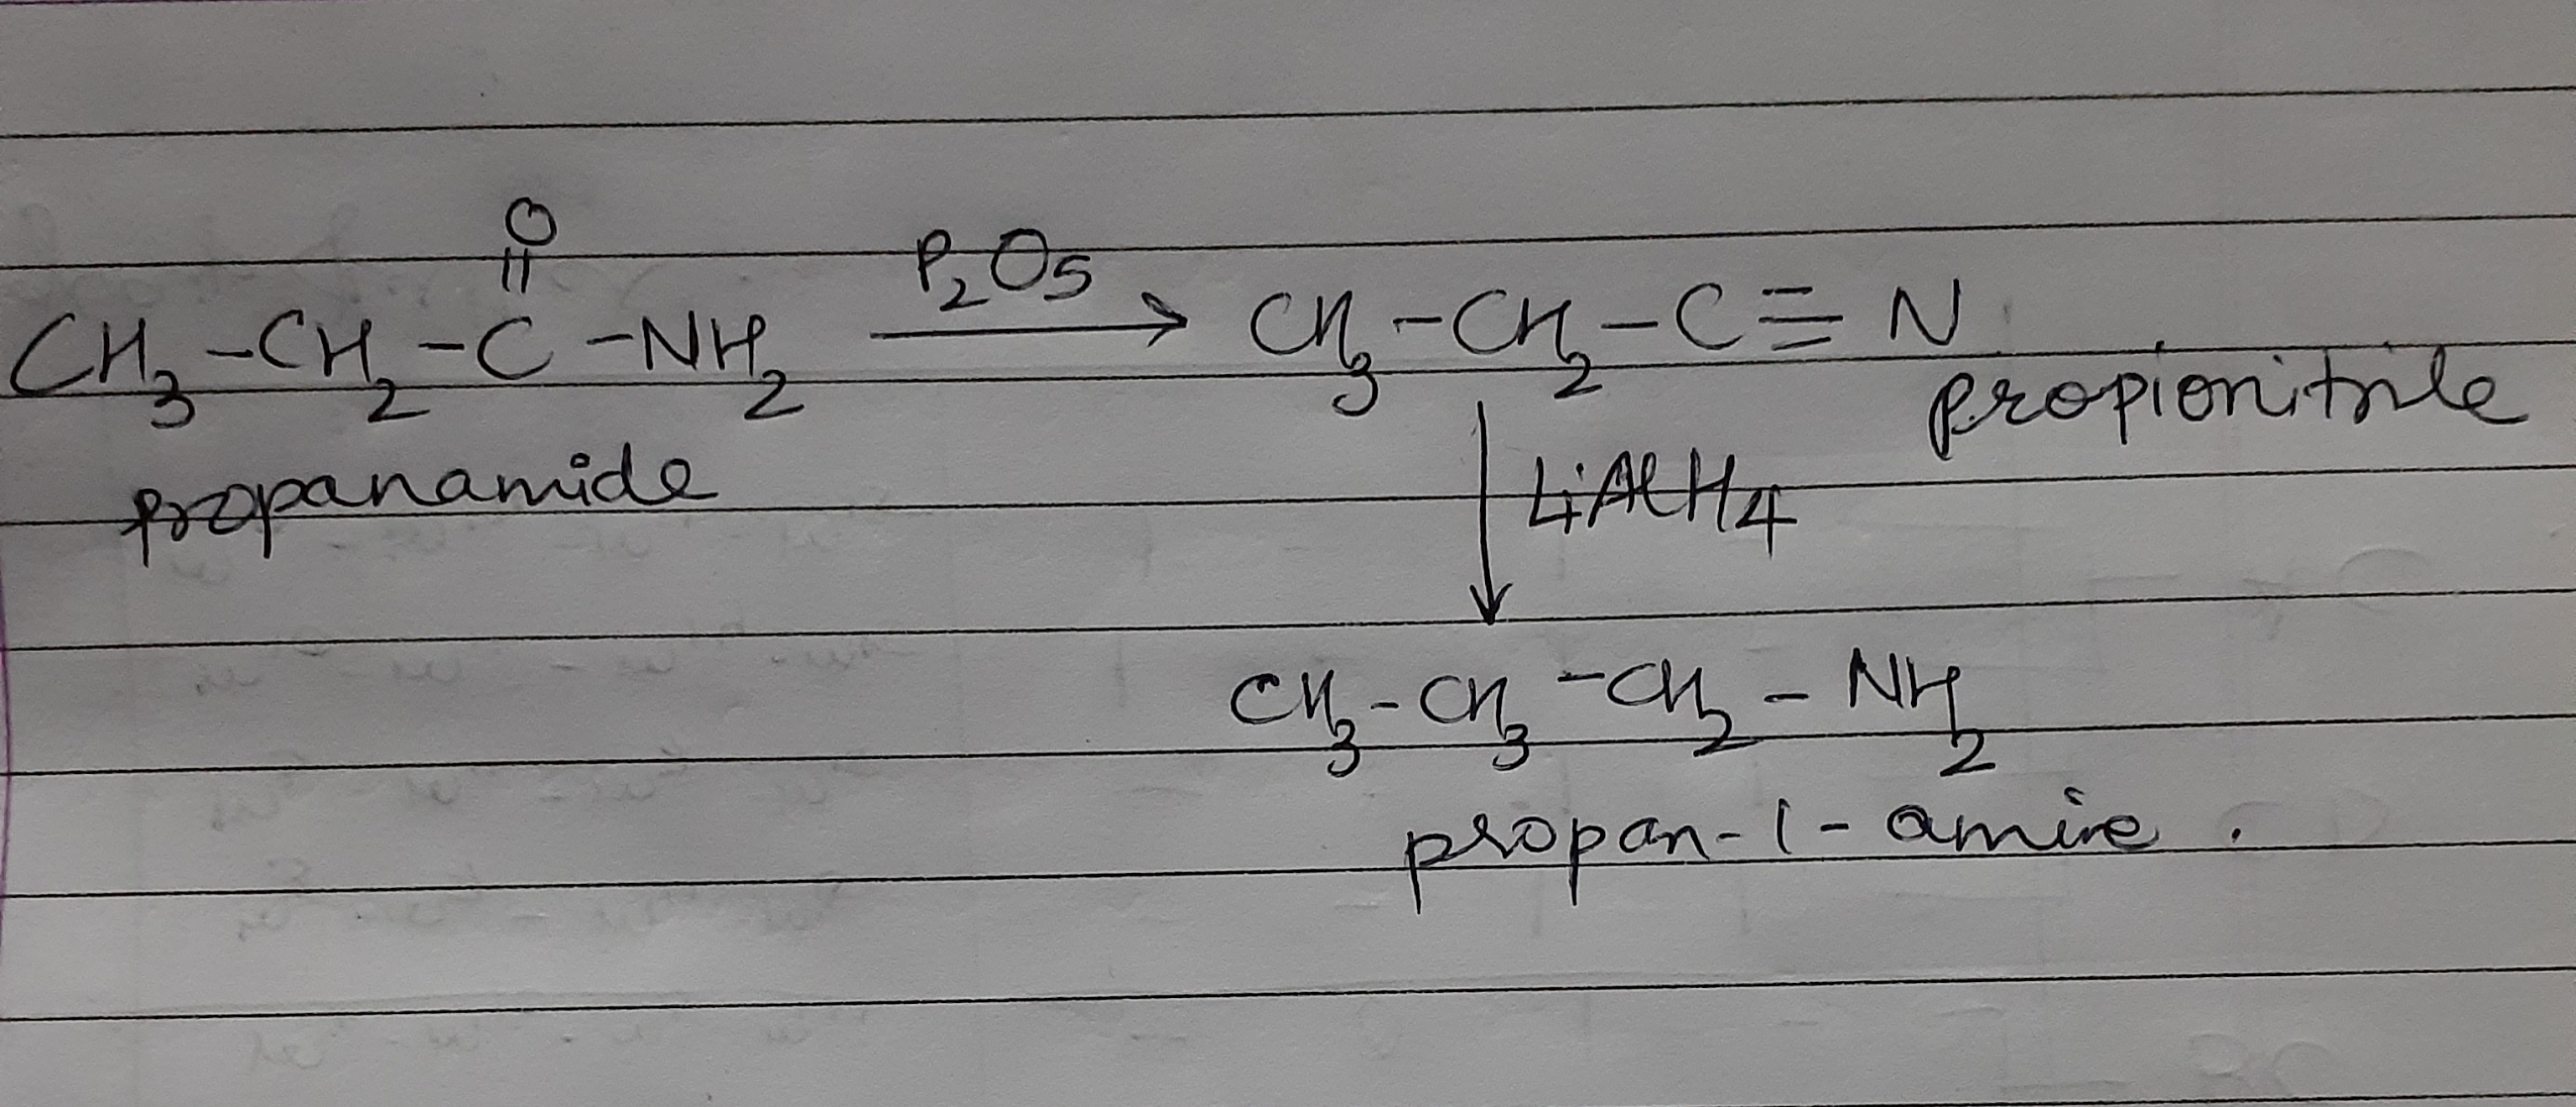 O
||
CH3-CH2-C-NH2 P2O5 → CH3-CH2-C≡N
propanamide propionitrile
↓ LiAlH4
CH3-CH3-CH2-NH2
propan-1-amine.